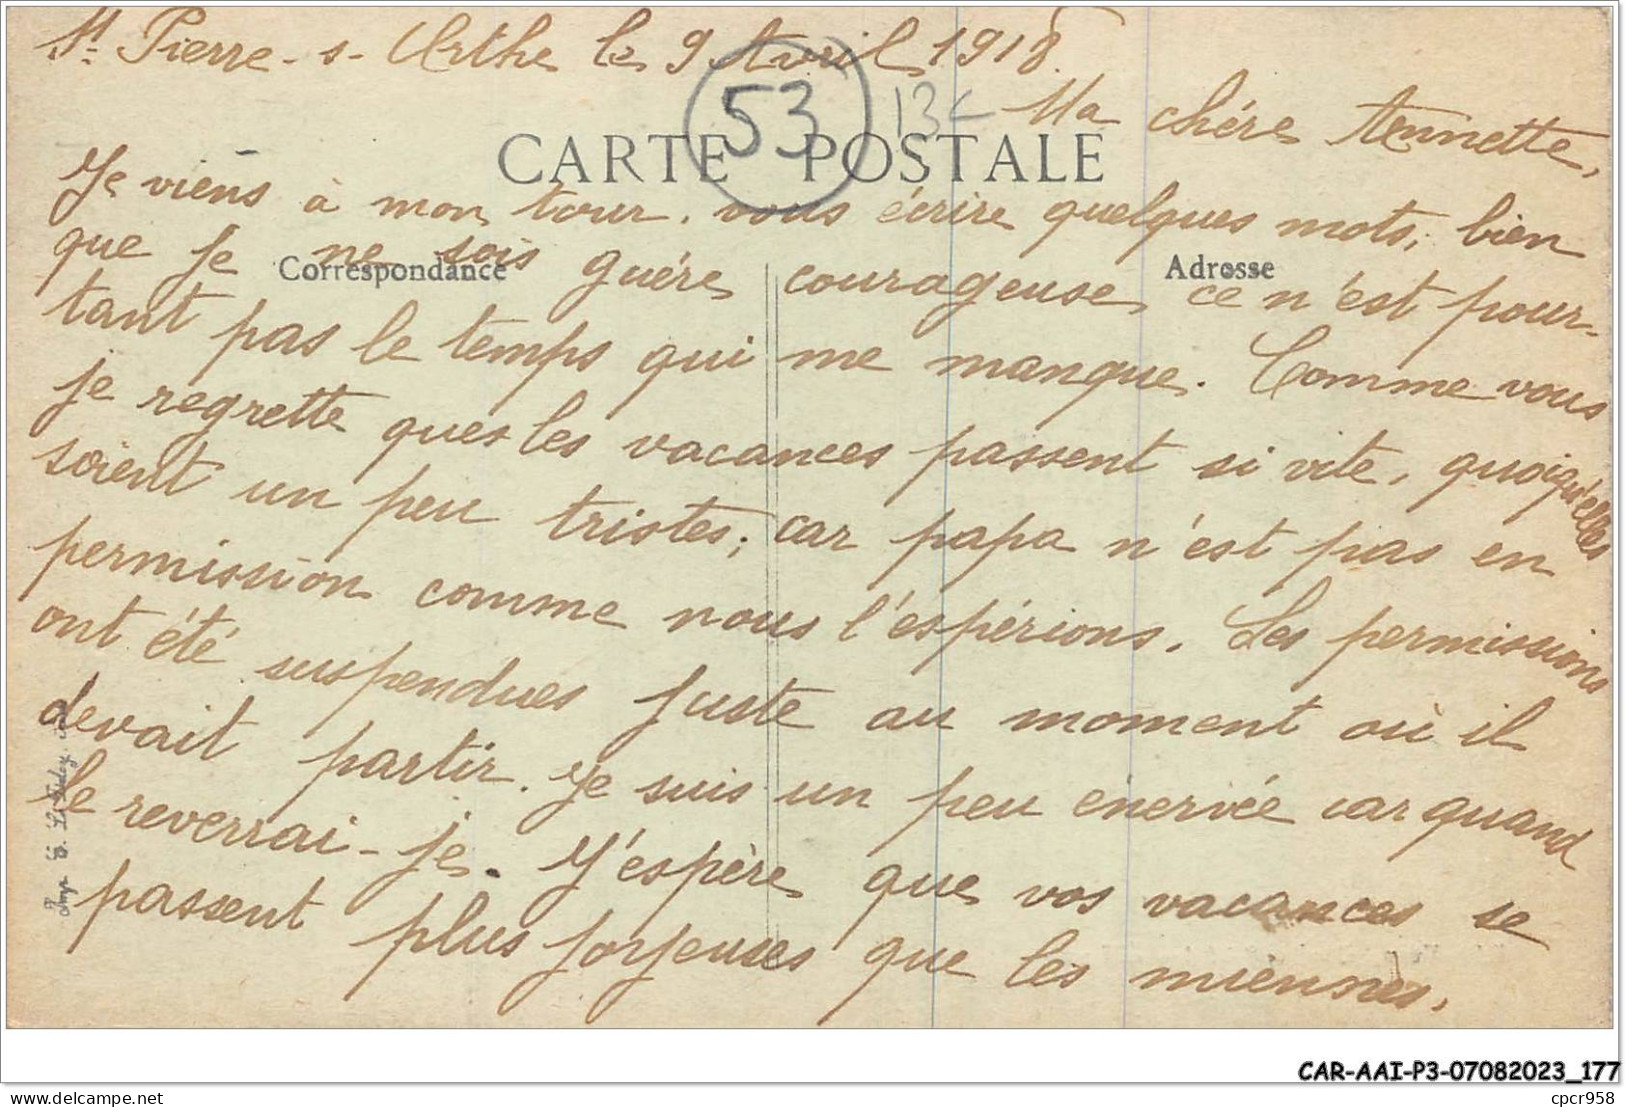 St Pierre-s-Orthe le 9 Avril 1918.
53
Ma chère Annette,
CARTE POSTALE
Je viens à mon tour, vous écrire quelques mots, bien
Correspondance
Adresse
que je ne sois guère courageuse, ce n'est pour-
tant pas le temps qui me manque. Comme vous
je regrette que les vacances passent si vite, quoiqu'elles
soient un peu tristes, car papa n'est pas en
permission comme nous l'espérions. Les permissions
ont été suspendues juste au moment où il
devait partir. Je suis un peu énervée car quand
le reverrai-je. J'espère que vos vacances se
passent plus joyeuses que les miennes.
CAR-AAI-P3-07082023_177
Delcampe.net
cpcr958